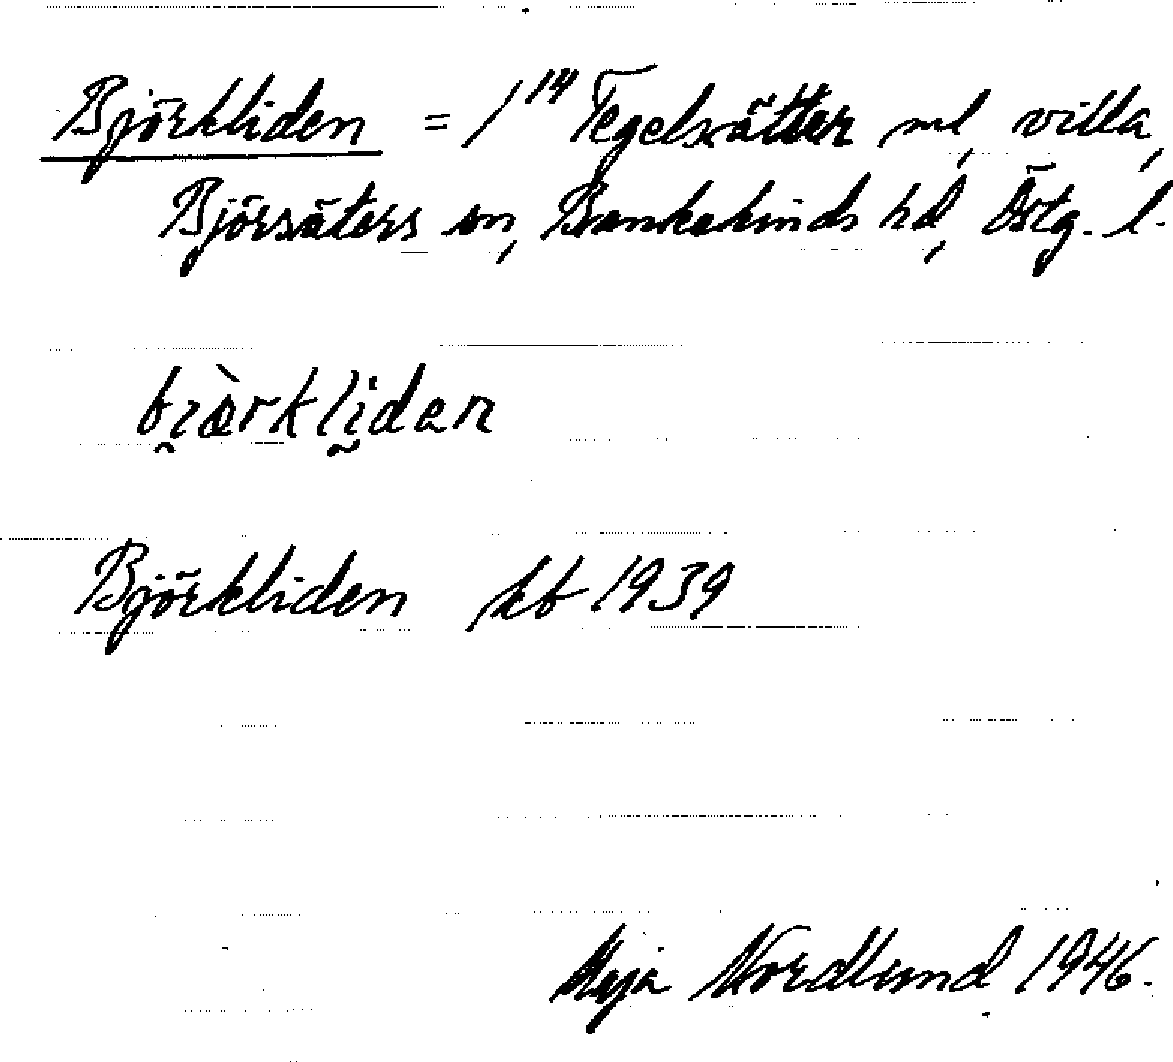 Björkliden = 1¹⁴ Tegelsätter ml, villa,
Björsäters sn, Bankekinds hd, Östg. l.
Björkliden kb 1939
Maja Nordlund 1946.